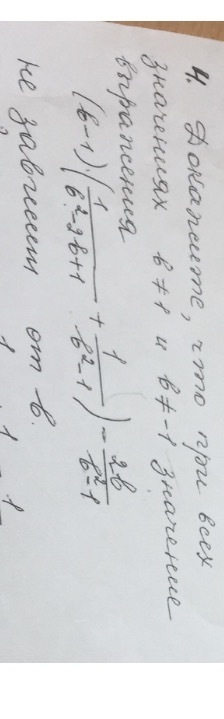 4. Докажите, что при всех
значениях b ≠ 1 и b ≠ -1 значение
выражения
(b-1)·(1/(b²-2b+1) + 1/(b²-1)) - 2b/(b²-1)
не зависит от b.